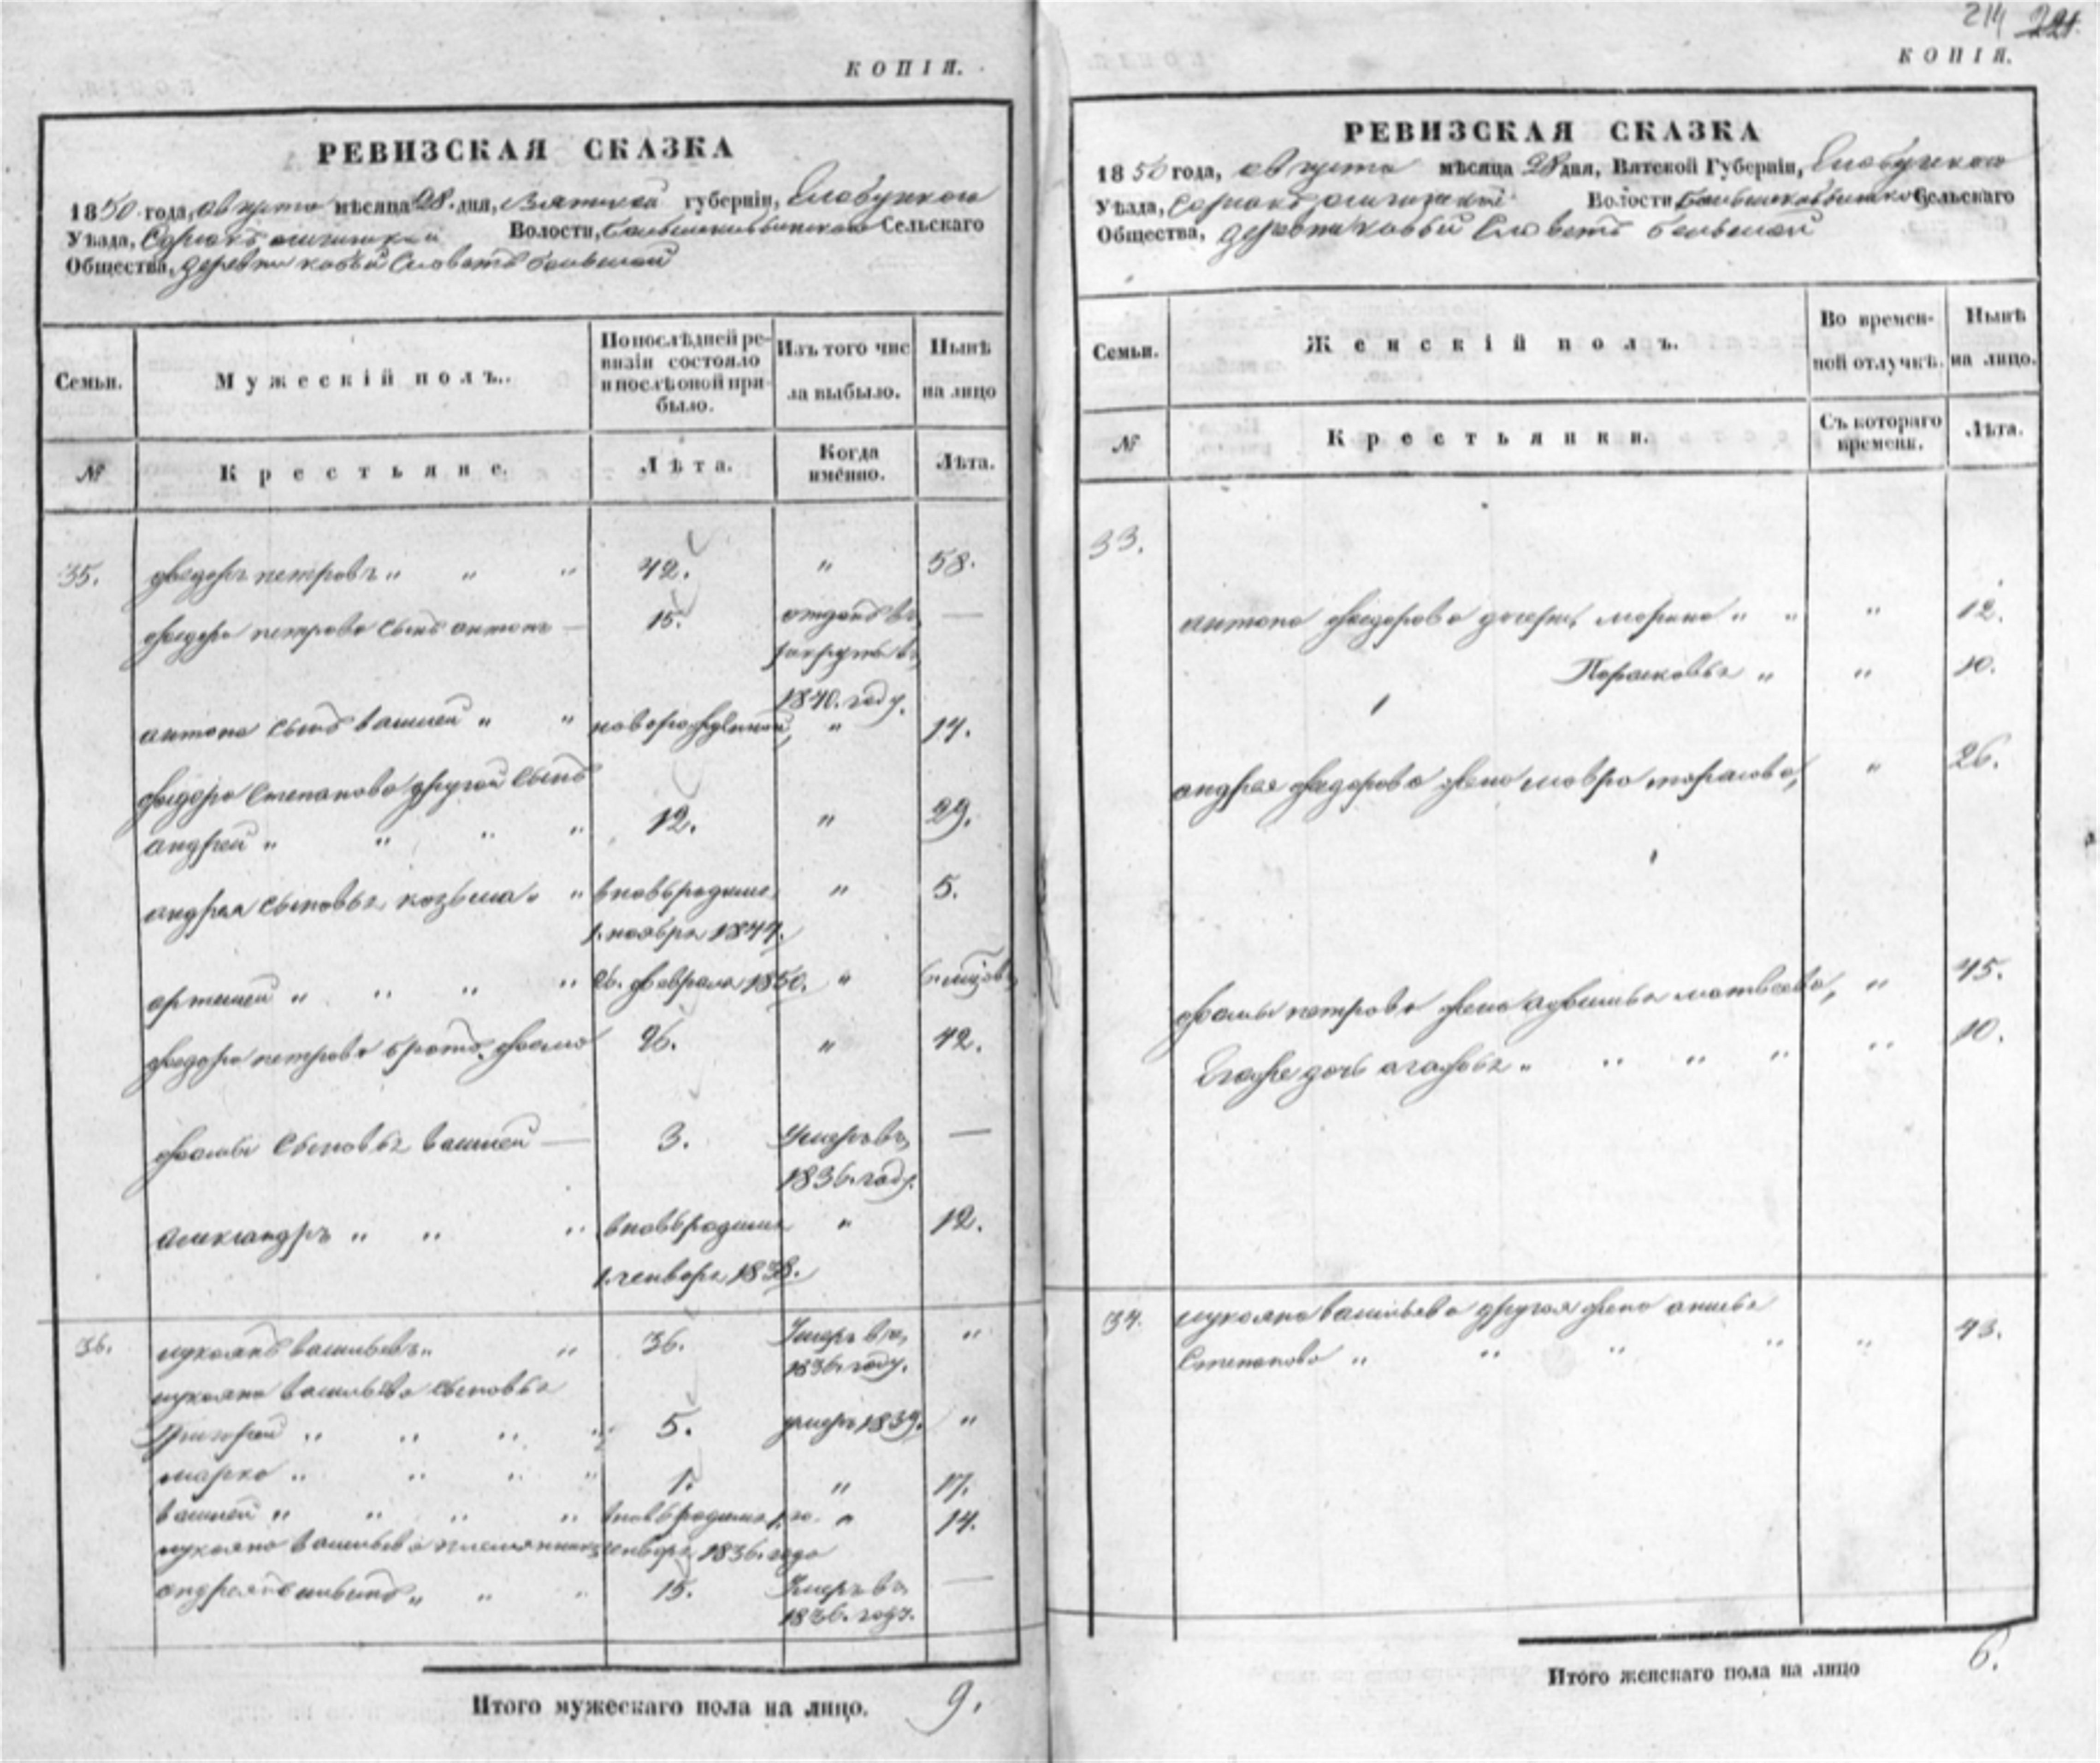 КОПІЯ.
РЕВИЗСКАЯ СКАЗКА
1850 года, августа мѣсяца 28. дня, Вятской губерніи, Елабужскаго
Уѣзда, Волости, Сельскаго
Общества, деревни большой
Семьи. Мужескій полъ. По послѣдней ре-
визіи состояло
и послѣ оной при-
было. Изъ того чис
ла выбыло. Нынѣ
на лицо
№ Крестьяне. Лѣта. Когда
именно. Лѣта.
35. федоръ петровъ " " " 42. " 58.
федора петрова сынъ антонъ — 15. отданъ въ —
рекруты въ
1840. году.
антона сынъ василей " " новорожденной, " 14.
федора степанова другой сынъ
андрей " " " " 12. " 29.
андрея сыновья козьма " " вновьродился " 5.
1. ноября 1844.
артемей " " " " 26. февраля 1850. "
федора петрова братъ фома 26. " 42.
фомы сыновья василей — 3. умеръ въ —
1836. году.
александръ " " " вновьродился " 12.
1. генваря 1838.
36. лукоянъ васильевъ " " 36. Умеръ въ "
1836. году.
лукояна васильева сыновья
григорей " " " " 5. умеръ 1839. "
марко " " " " 1. " 17.
василей " " " " вновьродился 1. го. " 14.
лукояна васильева племянникъ генваря 1836. года
" " 15. Умеръ въ —
1836. году.
Итого мужескаго пола на лицо. 9.
214 221.
КОПІЯ.
РЕВИЗСКАЯ СКАЗКА
1850 года, августа мѣсяца 28 дня, Вятской Губерніи, Елабужскаго
Уѣзда, Волости Сельскаго
Общества, деревни большой
Семьи. Женскій полъ. Во времен-
ной отлучкѣ. Нынѣ
на лицо.
№ Крестьянки. Съ котораго
времени. Лѣта.
33.
антона федорова дочери, марина " " " 12.
Парасковья " " 10.
андрея федорова жена мавра тарасова, " 26.
фомы петрова жена матвеева, " 45.
Егоже дочь агафья " " " " " 10.
34. лукояна васильева другая жена анисья
Степанова " " " " " 43.
Итого женскаго пола на лицо 6.